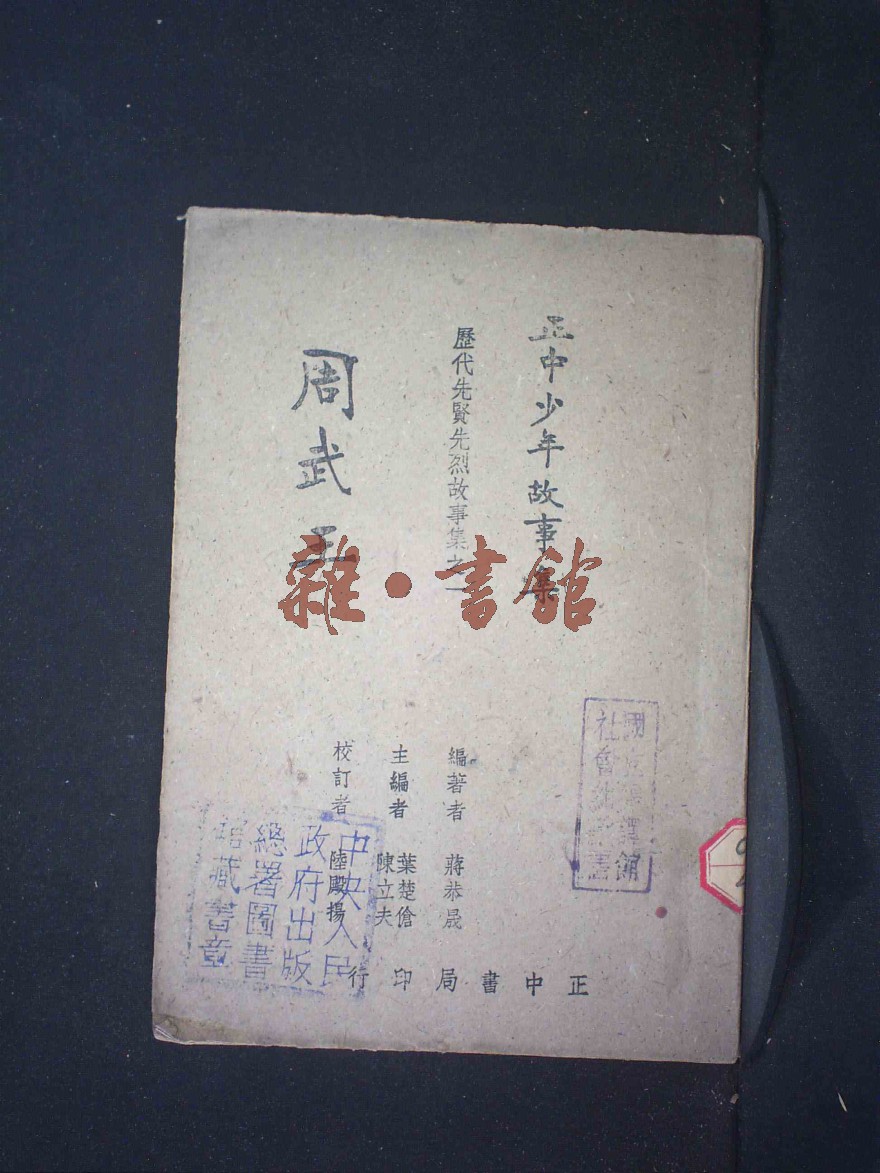 正中少年故事集
歷代先賢先烈故事集之一
周武王
編著者 蔣恭晟
主編者 葉楚傖 陳立夫
校訂者 陸殿揚
正中書局印行
雜·書館
國立編譯館
社會組藏書
中央人民
政府出版
總署圖書
館藏書章